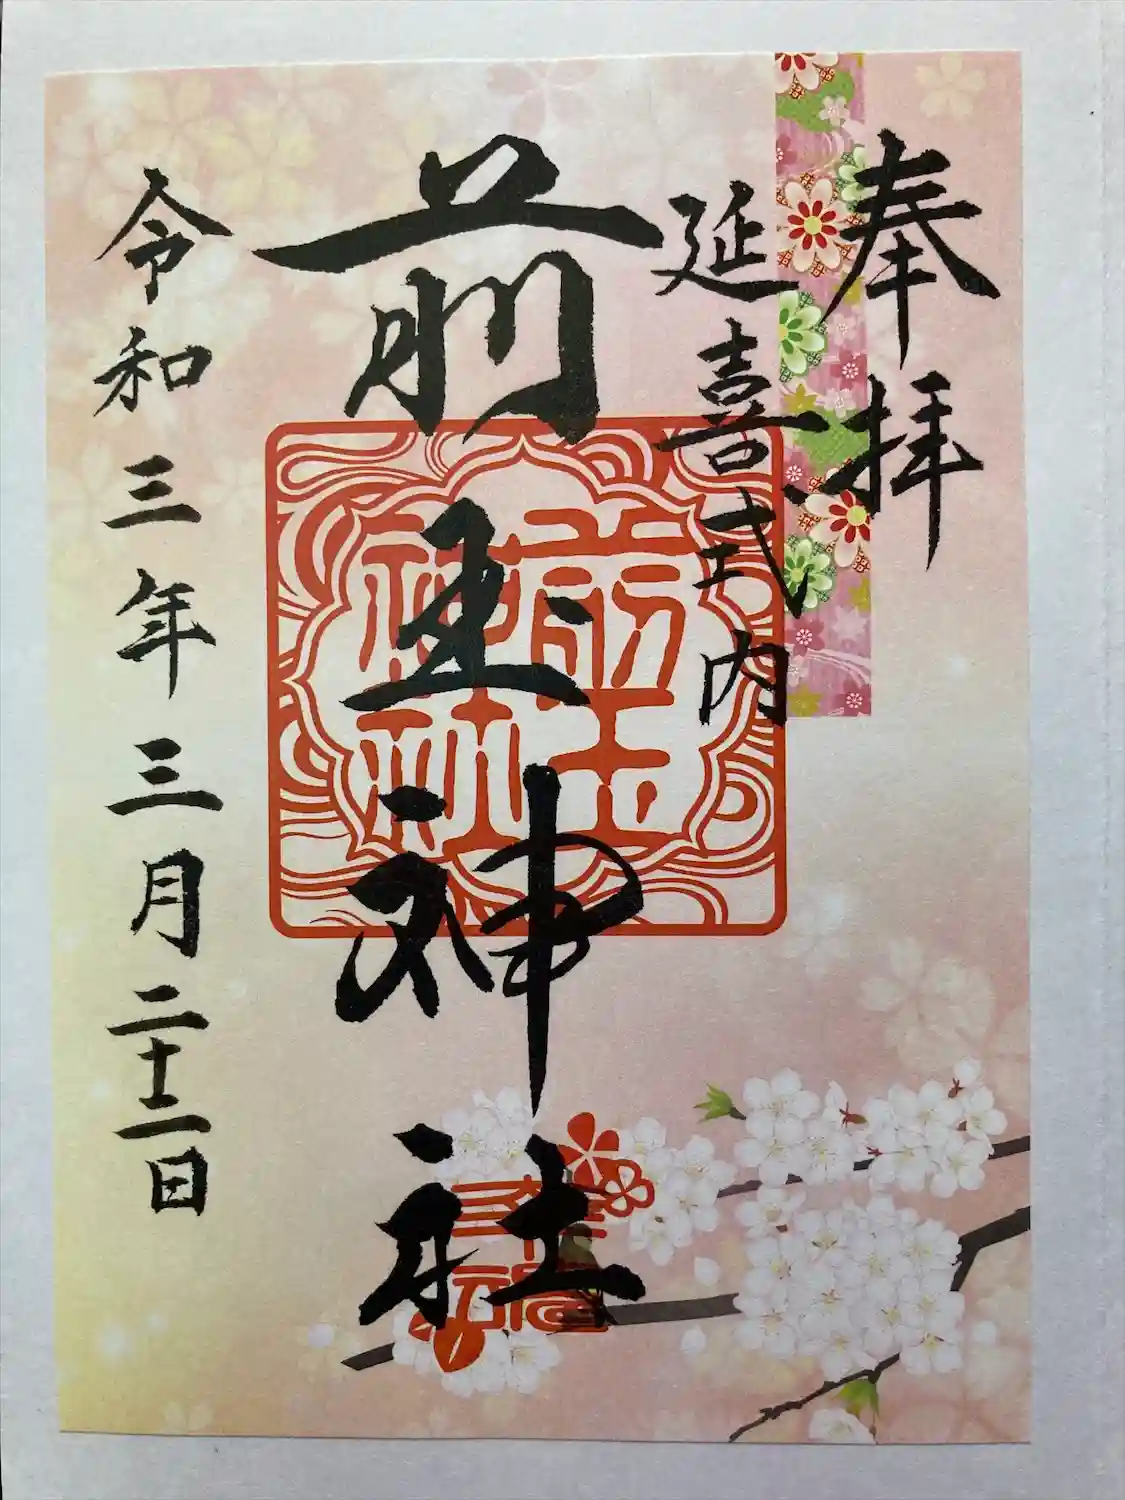 奉拝
延喜式内
前玉神社
前玉
神社
令和三年三月二十二日